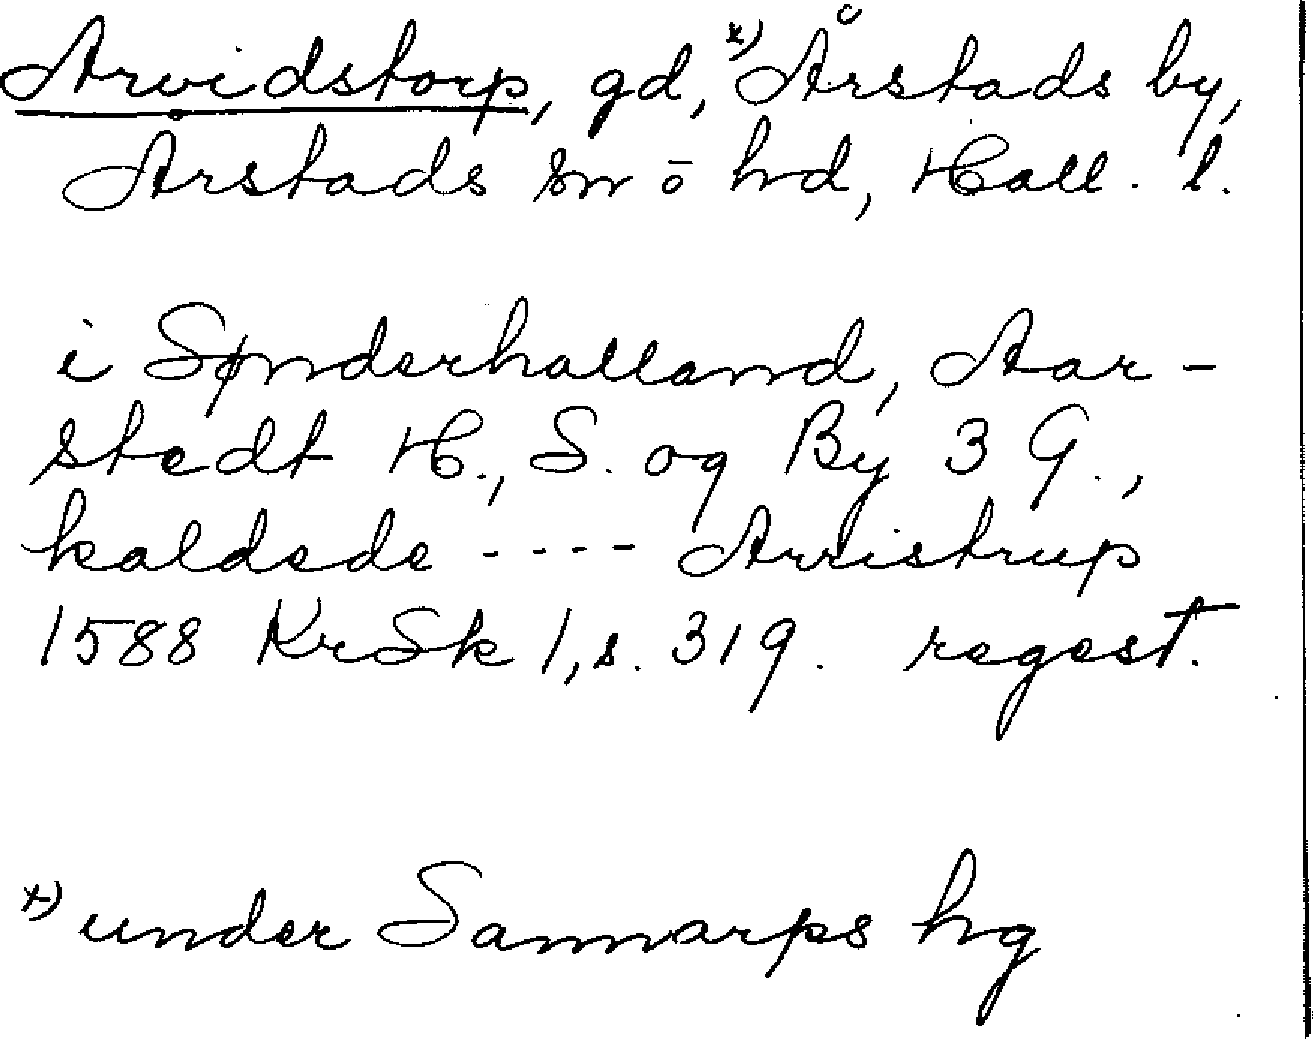 Arvidstorp, gd, *) Årstads by,
Årstads sn o hd, Hall. l.
i Sønderhalland, Aar-
stedt H., S. og By 3 G.,
kaldede ---- Arristrup
1588 KrSk 1, s. 319. regest.
*) under Sannarps hg